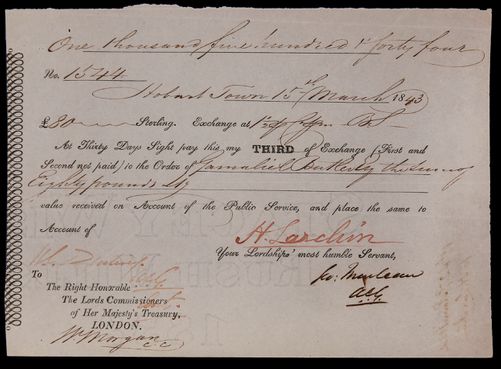 One thousand five hundred & forty four
No. 1544
Hobart Town 15th March 1843
£80 Sterling. Exchange at
At Thirty Days Sight pay this my THIRD of Exchange (First and
Second not paid) to the Order of Gamaliel Butler the sum of
Eighty pounds Stg
value received on Account of the Public Service, and place the same to
Account of
Your Lordships' most humble Servant,
To
The Right Honorable
The Lords Commissioners
of Her Majesty's Treasury,
LONDON.
Wm Morgan